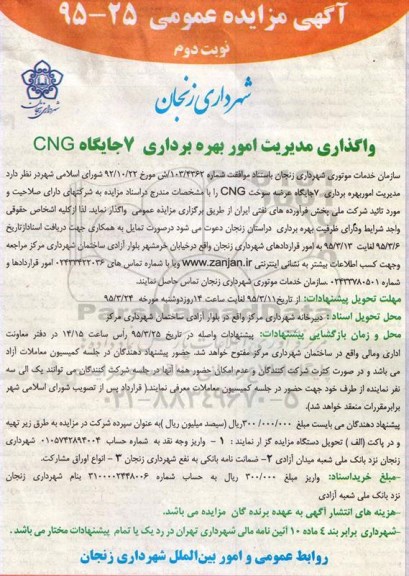 آگهی مزایده عمومی ۲۵-۹۵
نوبت دوم
شهرداری زنجان
شهرداری زنجان
واگذاری مدیریت امور بهره برداری ۷جایگاه CNG
سازمان خدمات موتوری شهرداری زنجان باستناد موافقت شماره ۱۰۳/۴۳۶۲/ش مورخ ۹۲/۱۰/۲۲ شورای اسلامی شهردر نظر دارد
مدیریت اموربهره برداری ۷جایگاه عرضه سوخت CNG را با مشخصات مندرج دراسناد مزایده به شرکتهای دارای صلاحیت و
مورد تائید شرکت ملی پخش فرآورده های نفتی ایران از طریق برگزاری مزایده عمومی واگذار نماید. لذا ازکلیه اشخاص حقوقی
واجد شرایط ودارای ظرفیت بهره برداری دراستان زنجان دعوت می شود درصورت تمایل به همکاری جهت دریافت اسنادازتاریخ
۹۵/۳/۶ لغایت ۹۵/۳/۱۳ به امور قراردادهای شهرداری زنجان واقع درخیابان خرمشهر بلوار آزادی ساختمان شهرداری مرکز مراجعه
وجهت کسب اطلاعات بیشتر به نشانی اینترنتی www.zanjan.ir ویا با شماره تماس های ۰۲۴۳۳۴۲۲۰۳۶ امور قراردادها و
شماره ۰۲۴۳۳۷۸۰۵۰۱ سازمان خدمات موتوری شهرداری زنجان تماس حاصل نمایند.
مهلت تحویل پیشنهادات: از تاریخ ۹۵/۳/۱۱ لغایت ساعت ۱۴روزدوشنبه مورخه ۹۵/۳/۲۴
محل تحویل اسناد : دبیرخانه شهرداری مرکز واقع در بلوار آزادی ساختمان شهرداری مرکز
محل و زمان بازگشایی پیشنهادات: پیشنهادات واصله در تاریخ ۹۵/۳/۲۵ رأس ساعت ۱۴/۱۵ در دفتر معاونت
اداری ومالی واقع در ساختمان شهرداری مرکز مفتوح خواهد شد. حضور پیشنهاد دهندگان در جلسه کمیسیون معاملات آزاد
می باشد و در صورت کثرت شرکت کنندگان و عدم امکان حضور همه آنها در جلسه شرکت کنندگان می توانند یک الی سه
نفر نماینده از طرف خود جهت حضور در جلسه کمیسیون معاملات معرفی نمایند.( قرارداد پس از تصویب شورای اسلامی شهر
برابرمقررات منعقد خواهد شد).
پیشنهاد دهندگان می بایست مبلغ ۳۰۰/۰۰۰/۰۰۰ریال (سیصد میلیون ریال )به عنوان سپرده شرکت در مزایده به طرق زیر تهیه
و در پاکت (الف ) تحویل دستگاه مزایده گزار نمایند : ۱ - واریز وجه نقد به شماره حساب ۰۱۰۵۷۴۲۸۹۴۰۰۴ شهرداری
زنجان نزد بانک ملی شعبه میدان آزادی ۲- ضمانت نامه بانکی به نفع شهرداری زنجان ۳ - انواع اوراق مشارکت.
-مبلغ خریداسناد: واریز مبلغ ۳۰۰/۰۰۰ ریال به حساب شماره ۳۱۰۰۰۰۲۴۴۸۰۰۶ بنام شهرداری زنجان
نزد بانک ملی شعبه آزادی
-هزینه های انتشار آگهی به عهده برنده گان مزایده می باشد.
-شهرداری برابر بند ۴ ماده ۱۰ آئین نامه مالی شهرداری تهران در رد یک یا تمام پیشنهادات مختار می باشد .
روابط عمومی و امور بین‌الملل شهرداری زنجان
۰۲۱-۸۸۳۴۹۶۷۰-۵